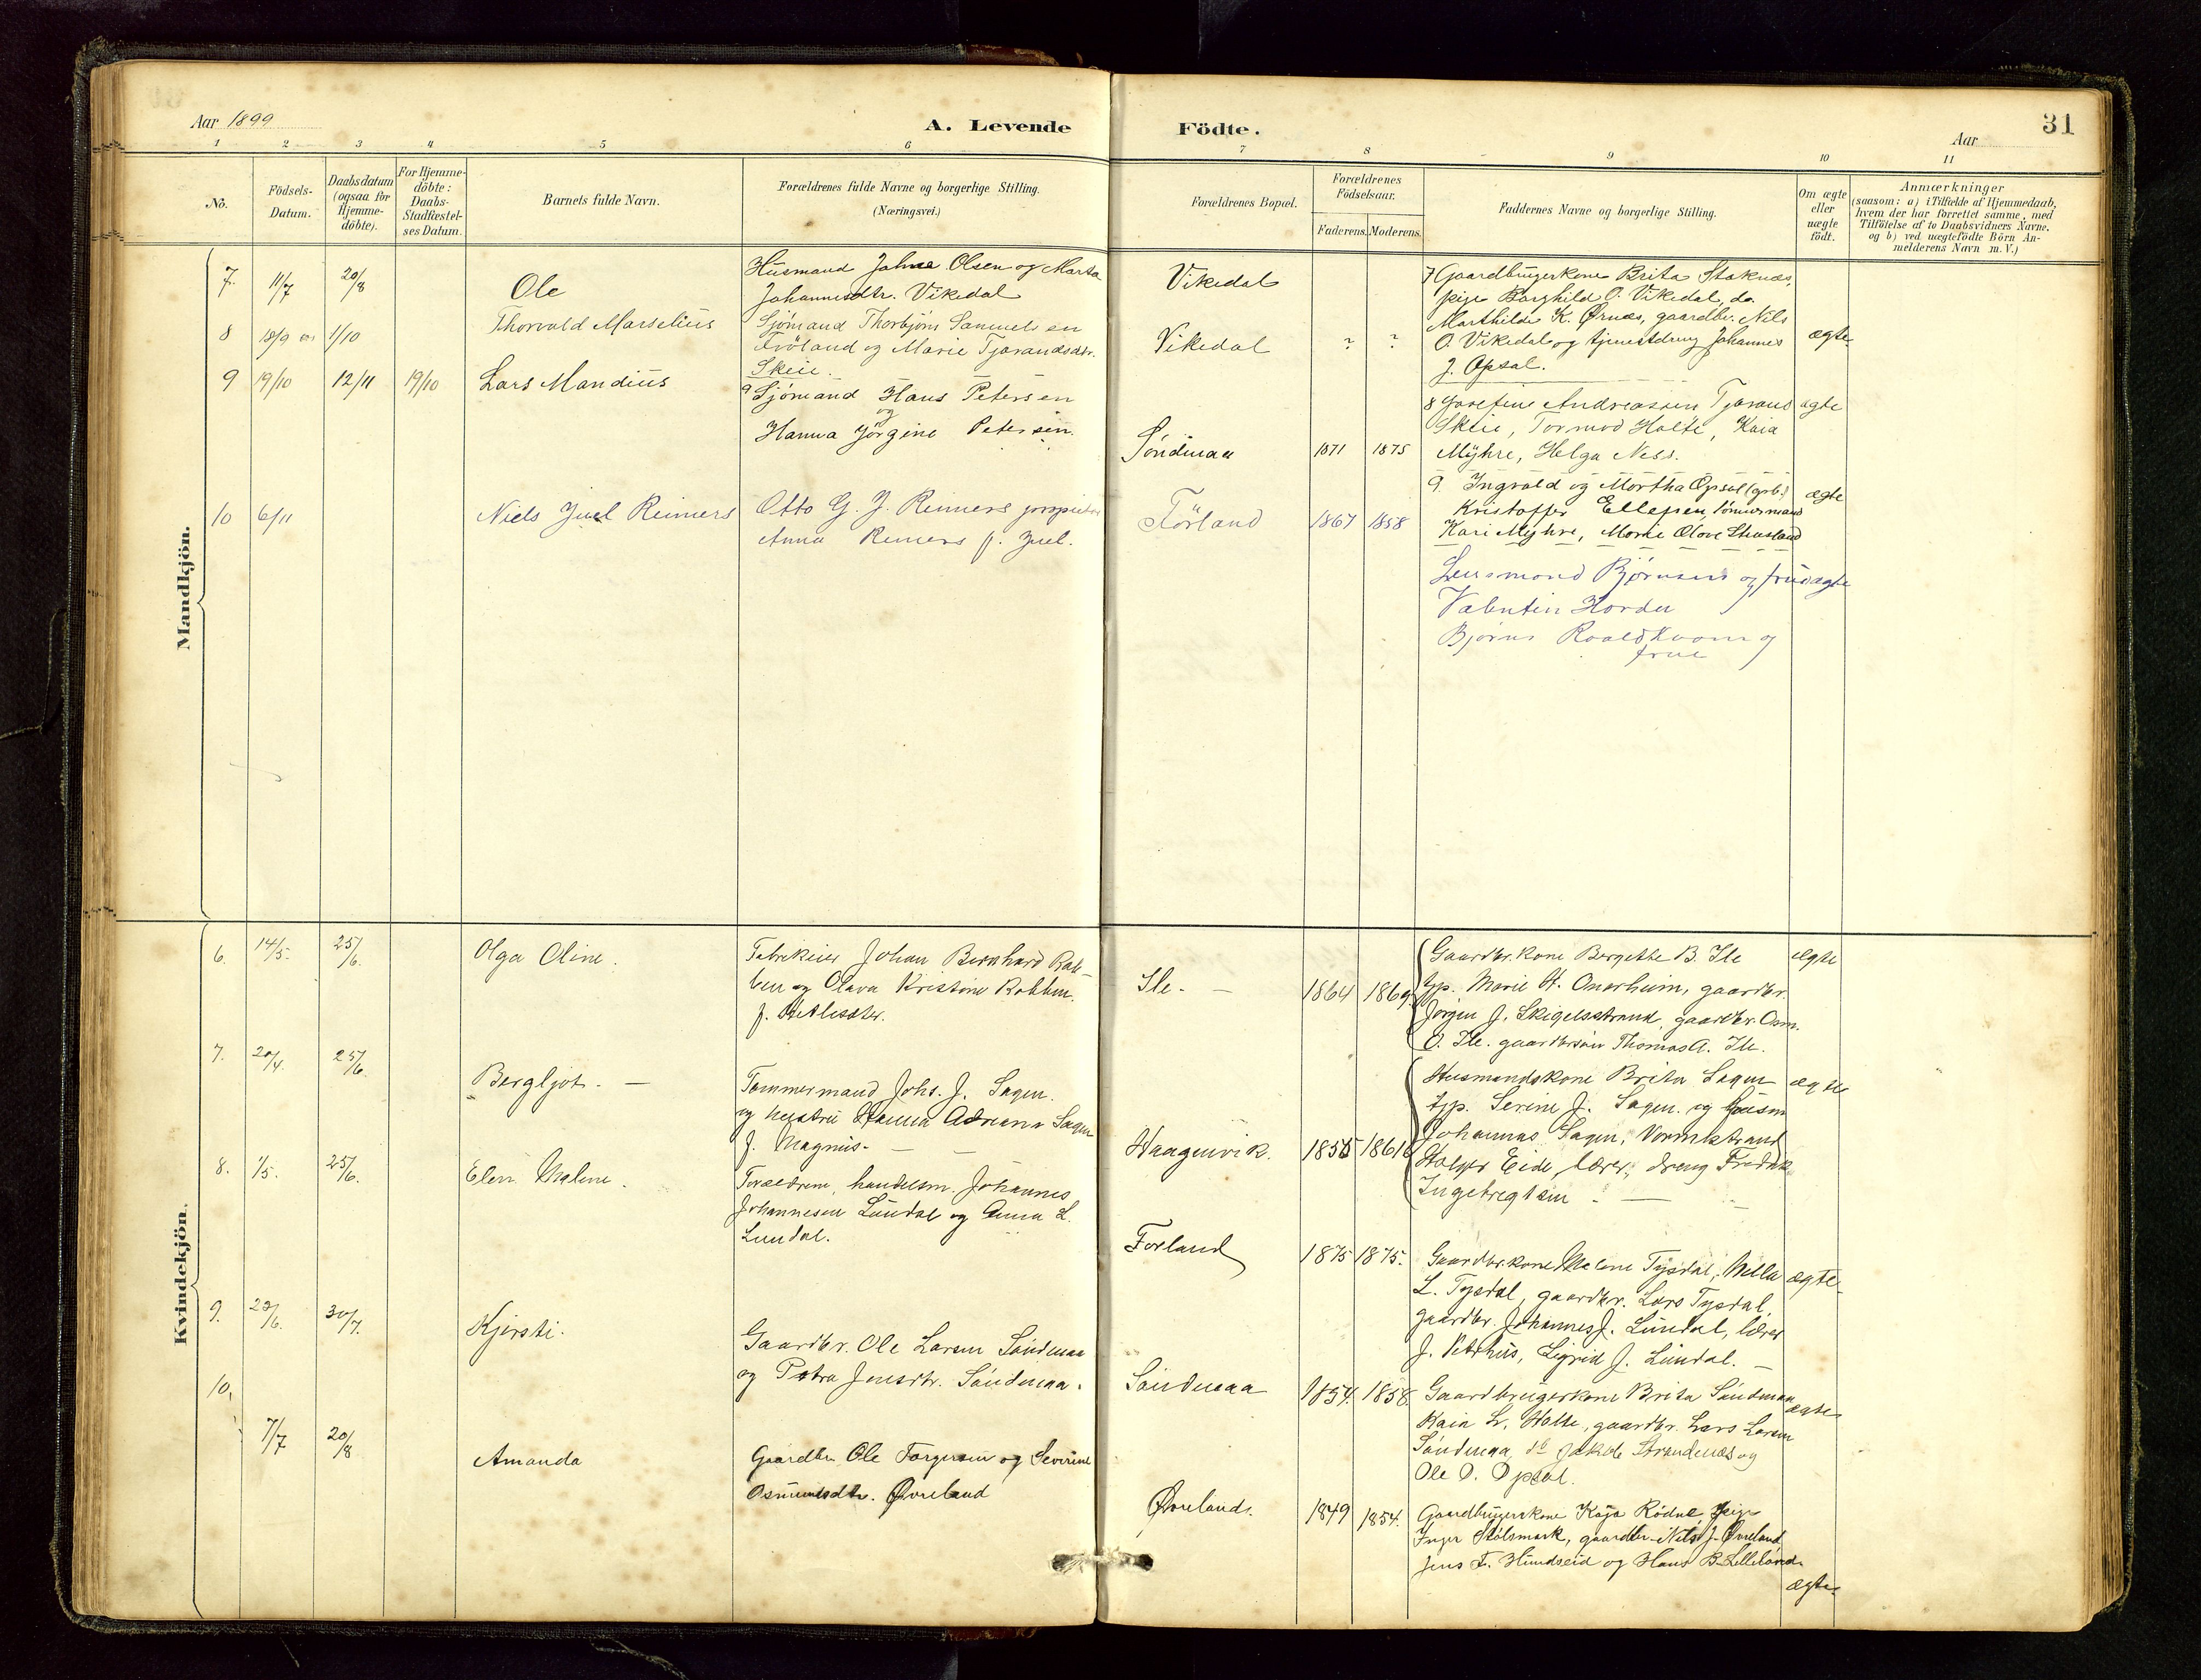 Aar 1899
A. Levende
Födte.
Aar
31
1 2 3 4 5 6 7 8 9 10 11
No.
Födsels-
Datum.
Daabsdatum
(ogsaa for
Hjemme-
döbte).
For Hjemme-
döbte:
Daabs-
Stadfæstel-
ses Datum.
Barnets fulde Navn.
Forældrenes fulde Navne og borgerlige Stilling.
(Næringsvei.)
Forældrenes Bopæl.
Forældrenes
Födselsaar.
Faderens. Moderens.
Faddernes Navne og borgerlige Stilling.
Om ægte
eller
uægte
födt.
Anmærkninger
(saasom: a) i Tilfælde af Hjemmedaab,
hvem der har forrettet samme, med
Tilföielse af to Daabsvidners Navne.
og b) ved uægtefödte Börn An-
melderens Navn m. V.)
Mandkjön.
7. 11/7 20/8
Ole
Husmand Johne Olsen og Marta
Johannesdtr. Vikedal
Vikedal
7 Gaardbrugerkone Brita Staknæs,
pige Borghild O. Vikedal, do.
Marthilde K. Ørnæs, gaardbr. Nils
O. Vikedal og tjenestdreng Johannes
J. Opsal.
ægte
8 18/9 1/10
Thorvald Marselius
Sjömand Thorbjörn Samuelsen
Fröland og Marie Tjerandsdtr.
Skeie.
Vikedal
? ?
8 Josefine Andreassen Tjerand
Skeie, Tormod Holte, Kaia
Myhre, Helga Ness.
ægte
9 19/10 12/11 19/10
Lars Mandius
9 Sjömand Hans Petersen
og
Hanna Jörgine Petersen.
Söndenaa
1871 1875
9. Ingvald og Martha Opsal (grb.)
Kristoffer Ellefsen, tömmermand
Kari Myhre, Marie Olave
ægte
10 6/11
Niels Juel Reimers
Otto G. J. Reimers proprietær
Anna Reimers f. Juel.
Förland
1867 1858
Lensmand Björnsen og frue
Valentin Horder
Björne Roaldkvam og
frue
ægte
Kvindekjön.
6. 14/5. 25/6.
Olga Oline.
Fabrikeier Johan Bernhard Rab-
ben og Olava Kristine Rabben.
f. Hetlesæter.
Ile. —
1864 1869
Gaardbr.kone Bergette B. Ile
tjp. Marie H. Onarheim, gaardbr.
Jörgen J. Skigelsstrand, gaardbr. Osm.
O. Ile. gaardbrsön Thomas A. Ile.
ægte
7. 20/4. 25/6.
Bergljot. —
Tømmermand Johs. J. Sagen.
og hustru Hanna Adriana Sagen
f. Magnus. — —
Haagenvik.
1855 1861
Husmandskone Brita Sagen
tjp. Serine J. Sagen. og husm
Johannes Sagen, Vormestrand
Holger Eide, lærer, dreng Fredrik
Ingebregtsen — —
ægte
8. 1/5. 25/6.
Elen Malene.
Forældrene, handelsm. Johannes
Johannesen Lundal og Anna L.
Lundal.
Forland
1875 1875.
Gaardbr.kone Malene Tysdal, Mella
L. Tysdal, gaardbr. Lars Tysdal,
gaardbr. Johannes J. Lundal, lærer
J. Veterhus, Sigrid J. Lundal. —
ægte
9. 20/6. 30/7.
Kjersti.
Gaardbr. Ole Larsen Söndenaa
og Petra Jensdtr. Söndenaa.
Söndenaa
1854. 1858.
Gaardbrugerkone Brita Söndenaa
Kaia L. Holte, gaardbr. Lars Larsen
Söndenaa, do Jakob Strandenæs og
Ole O. Opsal.
ægte
10.
7/7 20/8
Amanda
Gaardbr. Ole Torgersen og Severine
Osmundsdtr. Øvreland
Øvreland.
1849 1854.
Gaardbrugerkone Kaja Rödne, pige
Inger Stölsmark, gaardbr. Nils J. Øvreland,
Jens T. Hundseid og Hans B. Lilleland.
ægte